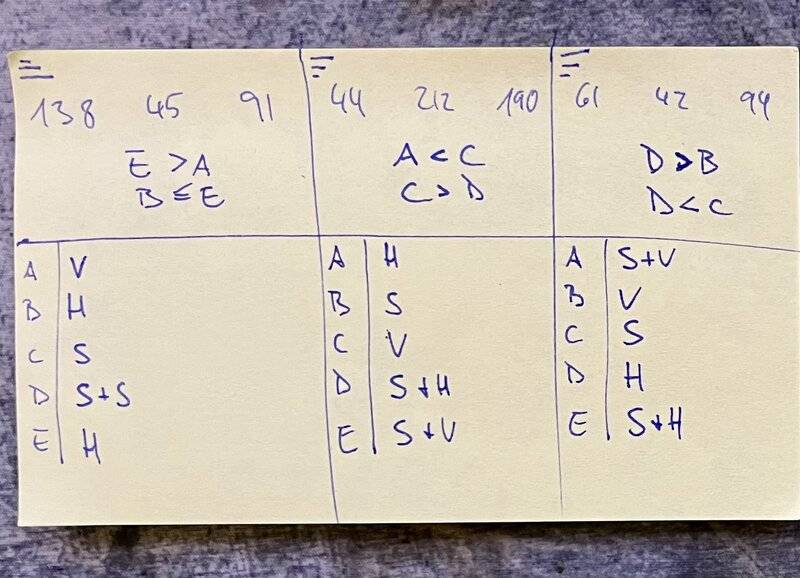 138 45 91
E > A
B ≤ E
A V
B H
C S
D S+S
E H
44 212 190
A < C
C > D
A H
B S
C V
D S+H
E S+V
61 42 94
D > B
D < C
A S+V
B V
C S
D H
E S+H